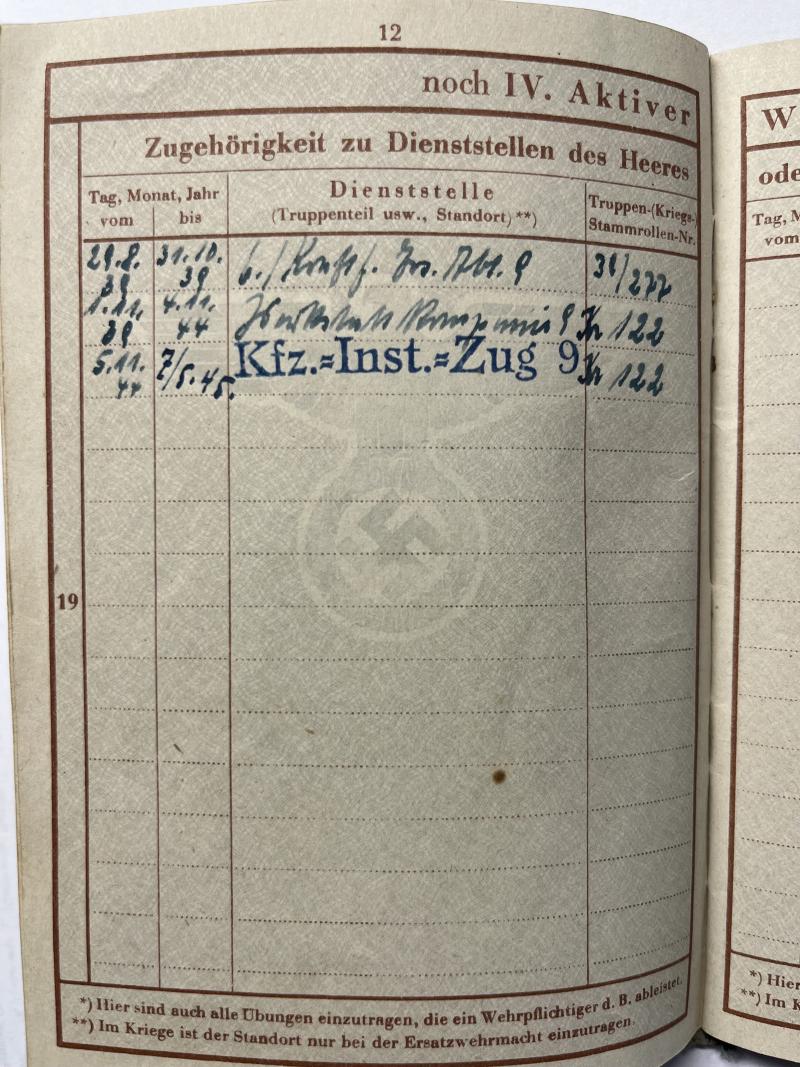 12
noch IV. Aktiver
Zugehörigkeit zu Dienststellen des Heeres
Tag, Monat, Jahr
vom bis
Dienststelle
(Truppenteil usw., Standort) **)
Truppen-(Kriegs-)
Stammrollen-Nr.
29.8. 39 31.10. 39 6./ Abt. 9 31/277
1.11. 39 4.11. 44 Werkstatt Kompanie 9 Kr 122
5.11. 44 7/5.45. Kfz.=Inst.=Zug 9 Kr 122
19
*) Hier sind auch alle Übungen einzutragen, die ein Wehrpflichtiger d. B. ableistet.
**) Im Kriege ist der Standort nur bei der Ersatzwehrmacht einzutragen.
W
ode
Tag, M
vom
*) Hier
**) Im K